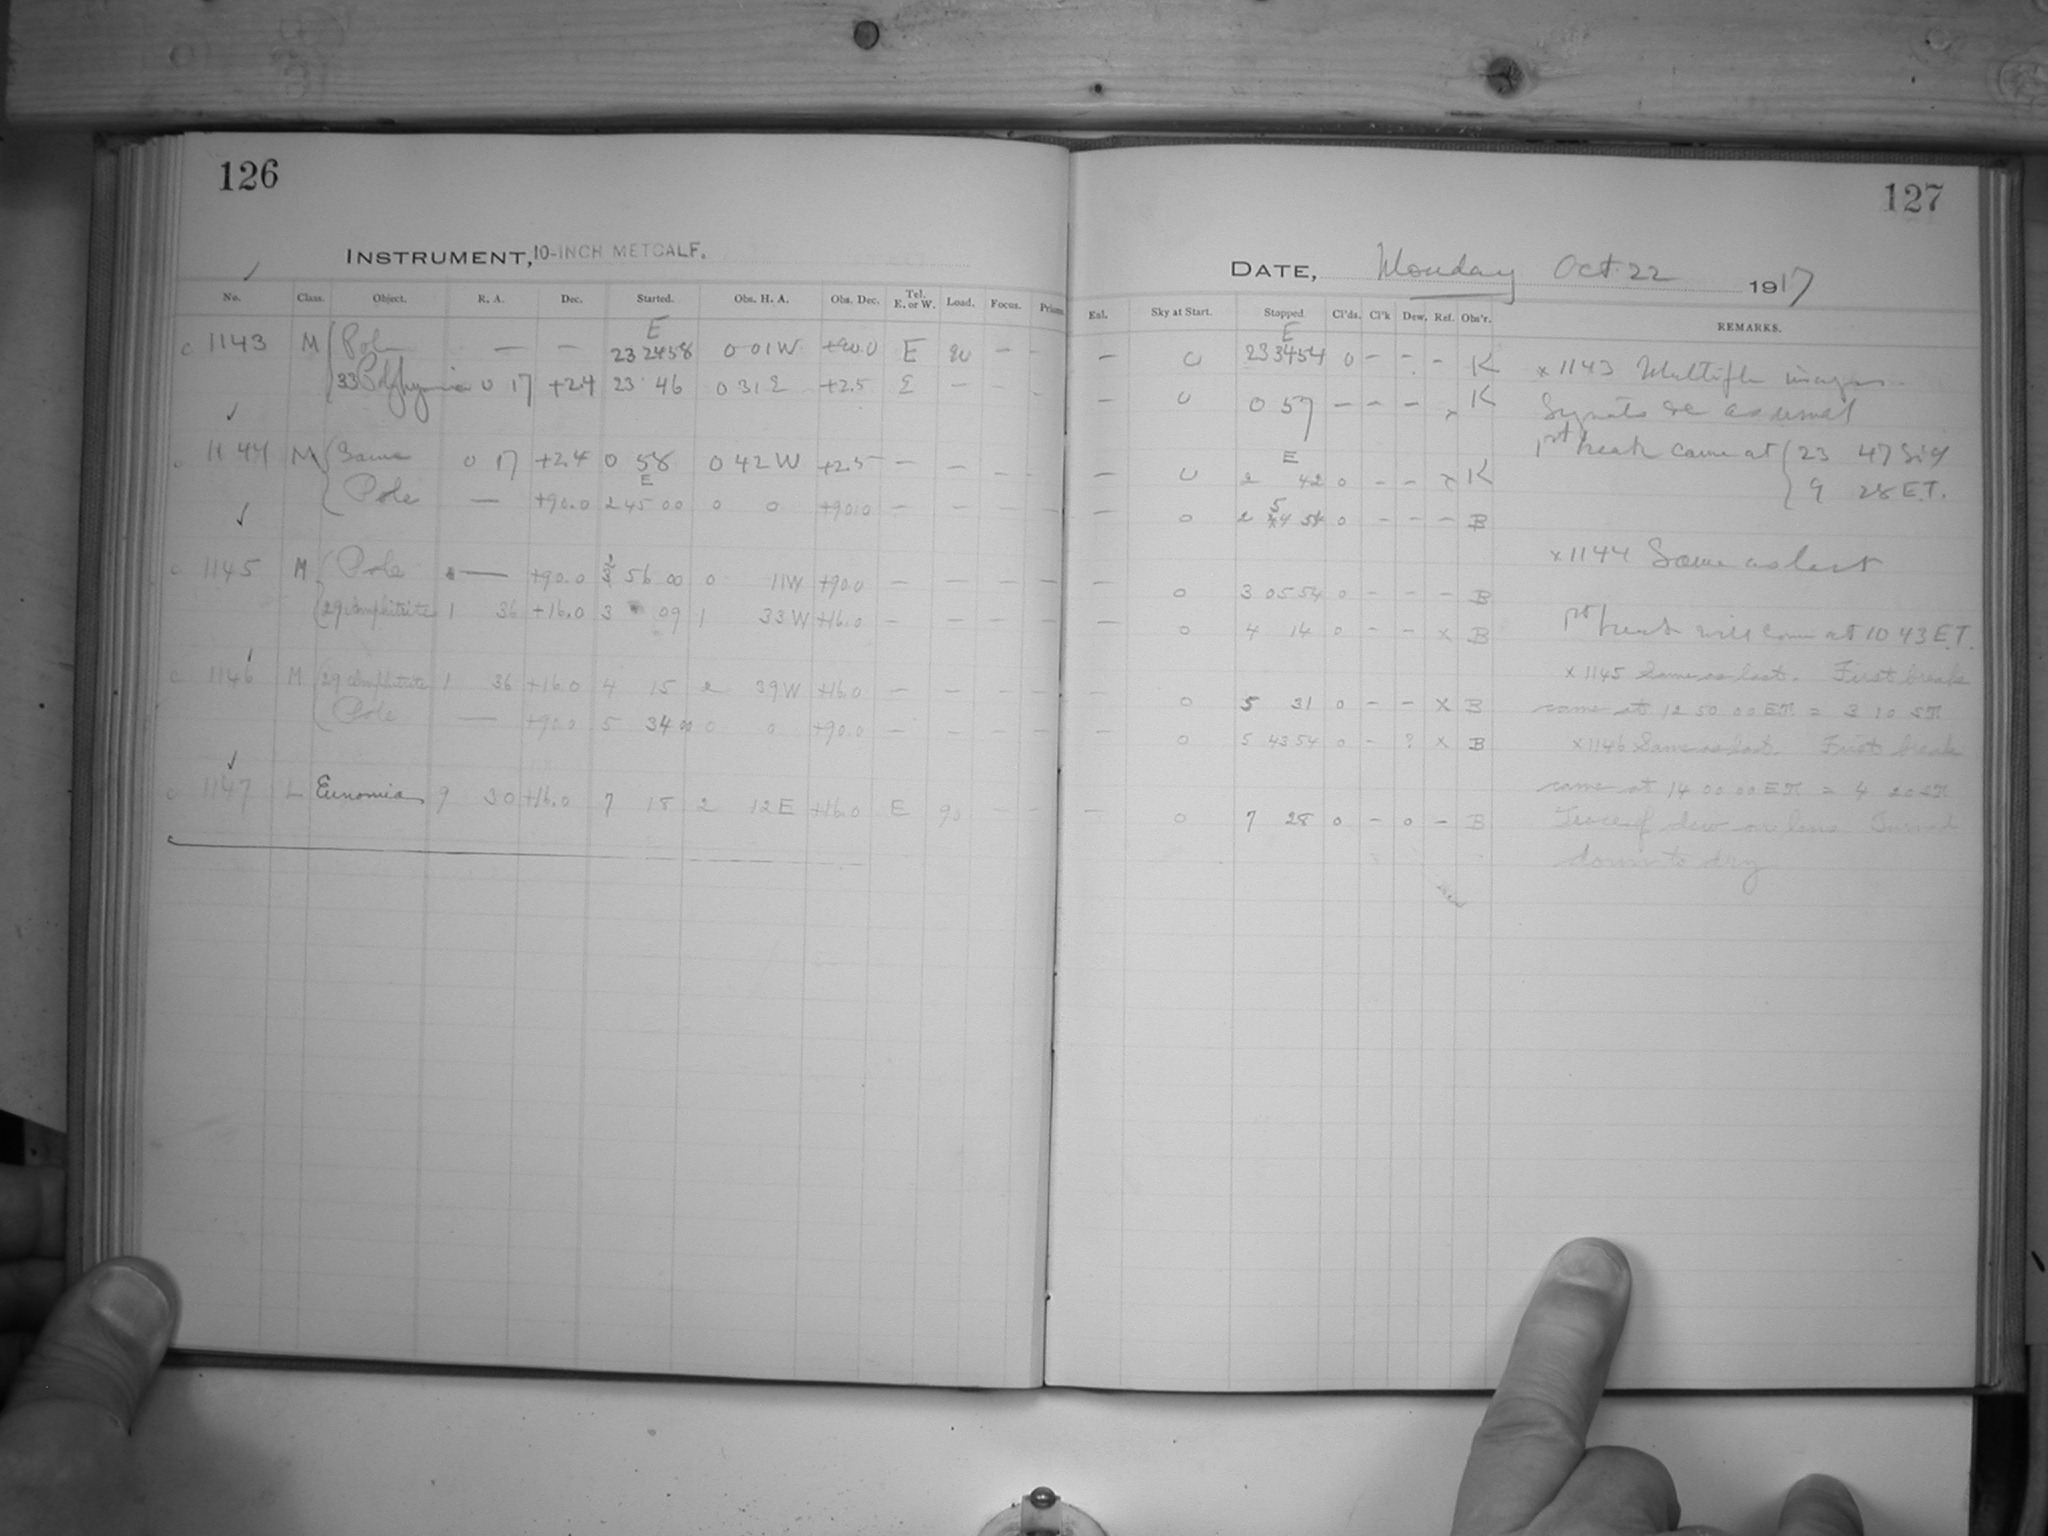 126
INSTRUMENT, 10-INCH METCALF.
No. Class. Object. R. A. Dec. Started. Obs. H. A. Obs. Dec. Tel. E. or W. Load. Focus. Prism.
c 1143 M Pole — — E 23 24 58 0 01 W +90.0 E 90 — —
33 Polyhymnia 0 17 +2.4 23 46 0 31 E +2.5 E — —
1144 M Same 0 17 +2.4 0 58 0 42 W +2.5 — — — —
Pole — +90.0 E 2 45 00 0 0 +90.0 — — — —
c 1145 M Pole — +90.0 56 00 0 11W +90.0 — — — —
29 Amphitrite 1 36 +16.0 3 09 1 33 W +16.0 — — — —
c 1146 M 29 Amphitrite 1 36 +16.0 4 15 2 39W +16.0 — — — —
Pole — +90.0 5 34 00 0 0 +90.0 — — — —
c 1147 L Eunomia 9 30 +16.0 7 18 2 12 E +16.0 E 90 — —
127
DATE, Monday Oct. 22 1917
Enl. Sky at Start. Stopped Cl'ds. Cl'k Dew. Ref. Obs'r. REMARKS.
— 0 E 23 34 54 0 — — — K
— 0 0 57 — — — x K
— 0 E 2 42 0 — — x K
— 0 2 54 0 — — — B
— 0 3 05 54 0 — — — B
— 0 4 14 0 — — x B
— 0 5 31 0 — — x B
— 0 5 43 54 0 — ? x B
— 0 7 28 0 — 0 — B
x 1143 Multiple images.
Signals &c as usual
1st break came at { 23 47 Sid
{ 9 28 E.T.
x 1144 Same as last
1st break will come at 10 43 E.T.
x 1145 Same as last. First break
came at 12 50 00 ET = 3 10 ST
x 1146 Same as last. First break
came at 14 00 00 ET = 4 20 ST
Trace of dew on lens Turned
down to dry